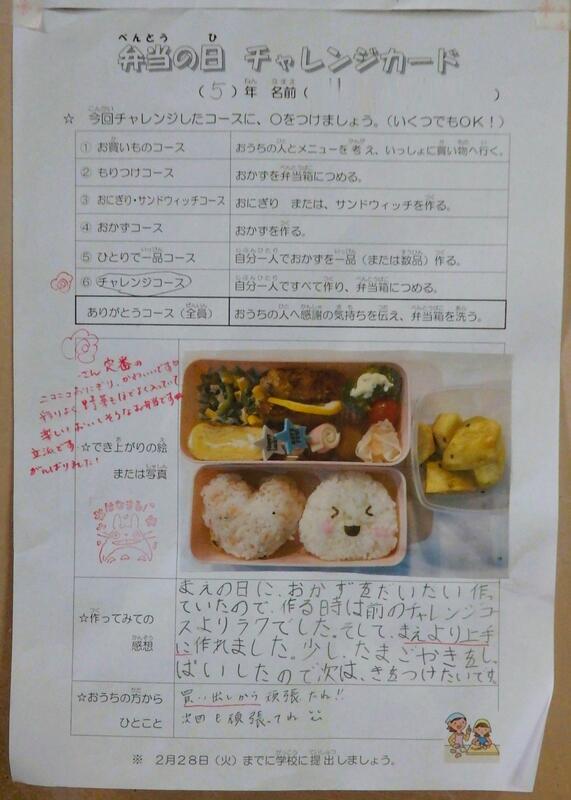 弁当の日 チャレンジカード
(5)年 名前(
)
☆ 今回チャレンジしたコースに、○をつけましょう。(いくつでもOK!)
① お買いものコース おうちの人とメニューを考え、いっしょに買い物へ行く。
② もりつけコース おかずを弁当箱につめる。
③ おにぎり・サンドウィッチコース おにぎり または、サンドウィッチを作る。
④ おかずコース おかずを作る。
⑤ ひとりで一品コース 自分一人でおかずを一品(または数品)作る。
⑥ チャレンジコース 自分一人ですべて作り、弁当箱につめる。
ありがとうコース(全員) おうちの人へ感謝の気持ちを伝え、弁当箱を洗う。
さん 定番の
ニコニコおにぎり、かわいいです
彩りよく野菜もほどよく入っていて
楽しいおいしそうなお弁当です
立派です
がんばりました!
☆でき上がりの絵
または写真
はなまる
☆作ってみての
感想
まえの日に、おかずをだいたい作っ
ていたので、作る時は前のチャレンジコー
スよりラクでした。そして、まえより上手
に作れました。少し、たまごやきをしっ
ぱいしたので次は、きをつけたいです。
☆おうちの方から
ひとこと
買い出しから頑張たね!!
次回も頑張ってね
※ 2月28日(火)までに学校に提出しましょう。